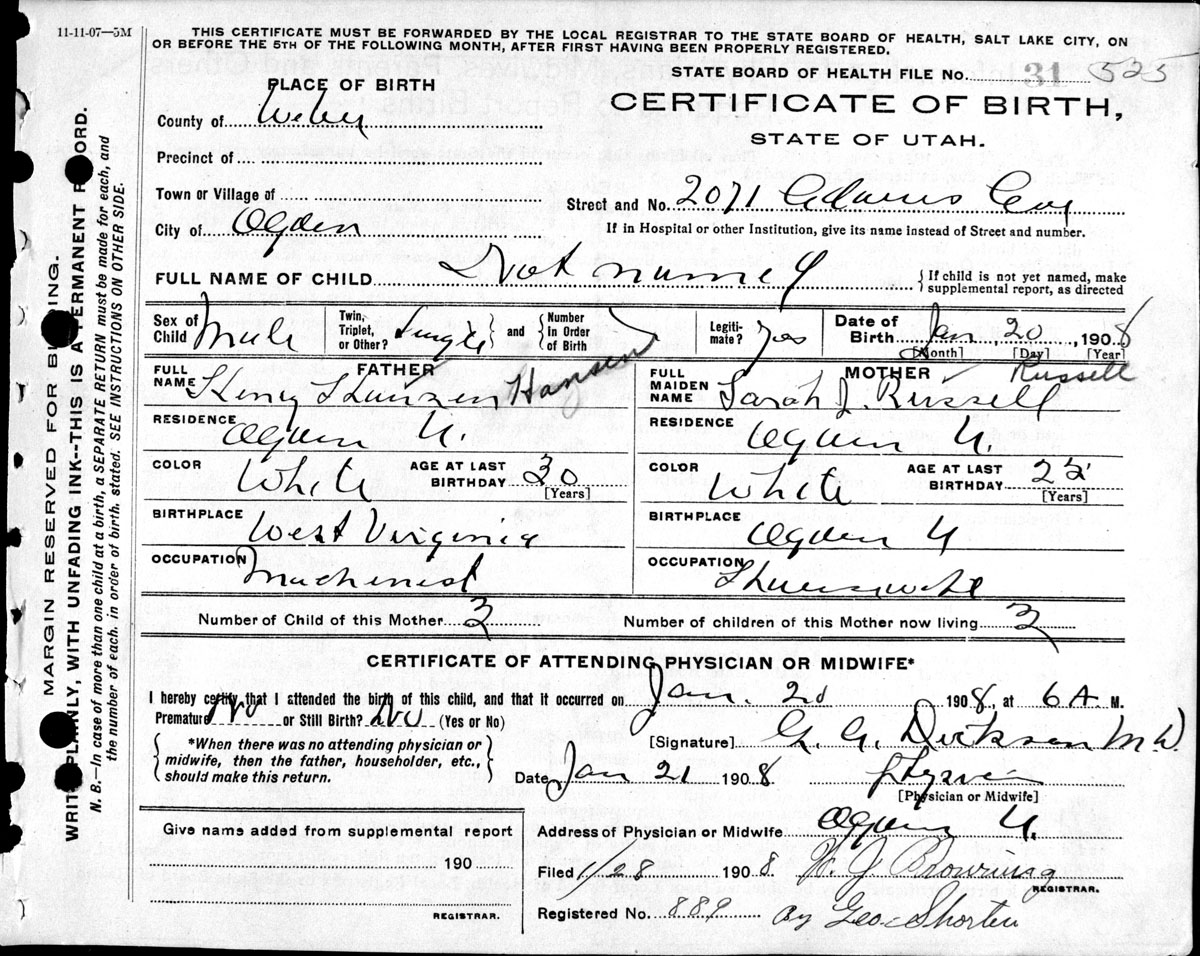 11-11-07—5M
THIS CERTIFICATE MUST BE FORWARDED BY THE LOCAL REGISTRAR TO THE STATE BOARD OF HEALTH, SALT LAKE CITY, ON
OR BEFORE THE 5TH OF THE FOLLOWING MONTH, AFTER FIRST HAVING BEEN PROPERLY REGISTERED.
STATE BOARD OF HEALTH FILE No. 31 523
PLACE OF BIRTH
CERTIFICATE OF BIRTH,
STATE OF UTAH.
County of Weber
Precinct of
Town or Village of
Street and No. 2071 Adams Ave
City of Ogden
If in Hospital or other Institution, give its name instead of Street and number.
FULL NAME OF CHILD Not named
{ If child is not yet named, make supplemental report, as directed
Sex of Child Male
Twin, Triplet, or Other? Single } and { Number In Order of Birth
Legitimate? Yes
Date of Birth Jan 20, 1908
[Month] [Day] [Year]
FATHER
MOTHER Russell
FULL NAME Henry Hansen
FULL MAIDEN NAME Sarah J. Russell
RESIDENCE Ogden U.
RESIDENCE Ogden U.
COLOR White AGE AT LAST BIRTHDAY 30 [Years]
COLOR White AGE AT LAST BIRTHDAY [Years]
BIRTHPLACE West Virginia
BIRTHPLACE Ogden U
OCCUPATION Machinest
OCCUPATION Housewife
Number of Child of this Mother 3
Number of children of this Mother now living 3
CERTIFICATE OF ATTENDING PHYSICIAN OR MIDWIFE*
I hereby certify that I attended the birth of this child, and that it occurred on Jan. 20 1908, at 6 A M.
Premature No or Still Birth? No (Yes or No)
[Signature] Dickson M D.
{ *When there was no attending physician or midwife, then the father, householder, etc., should make this return. }
Date Jan 21 1908
[Physician or Midwife]
Give name added from supplemental report
190
REGISTRAR.
Address of Physician or Midwife Ogden U.
Filed 1/28 1908 W. J. Browning
REGISTRAR.
Registered No. 889 By Geo Shorten
MARGIN RESERVED FOR BINDING.
WRITE PLAINLY, WITH UNFADING INK--THIS IS A PERMANENT RECORD.
N. B.—In case of more than one child at a birth, a SEPARATE RETURN must be made for each, and
the number of each, in order of birth, stated. SEE INSTRUCTIONS ON OTHER SIDE.